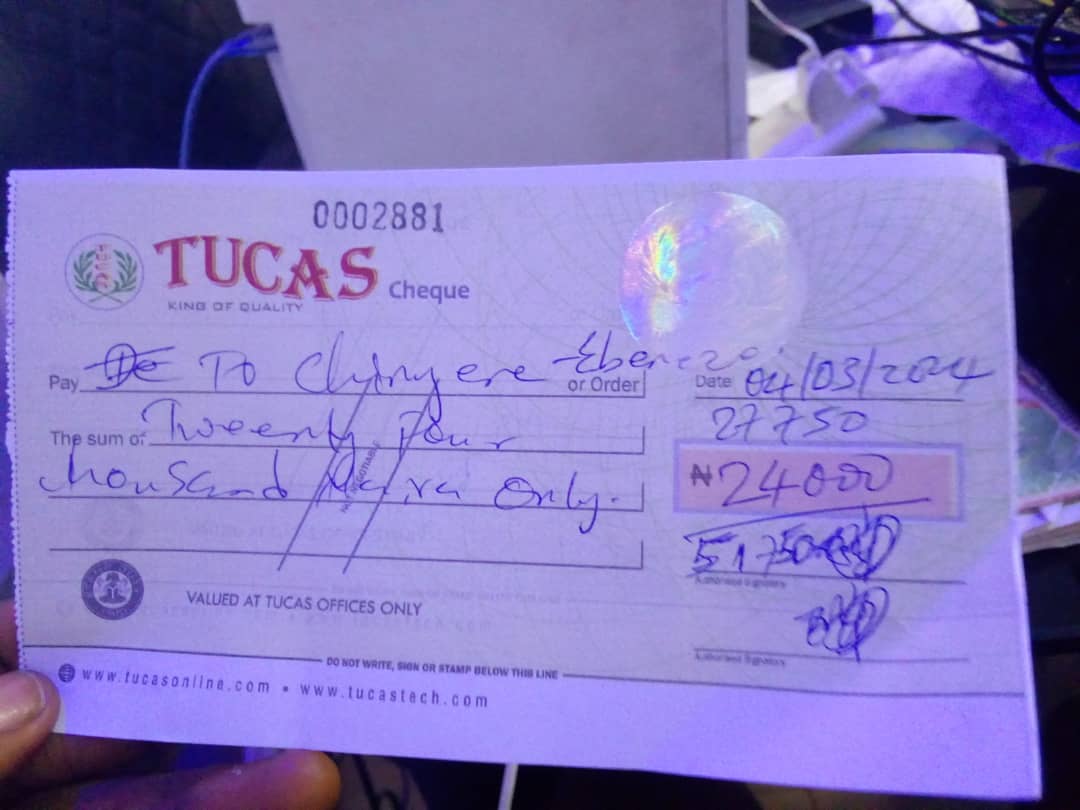 0002881
TUCAS Cheque
KING OF QUALITY
Pay To Chinyere Ebenezer or Order
Date 04/03/2024
27750
The sum of Tweenty four
thousand Naira Only.
NOT NEGOTIABLE
₦24000
51750
Authorised Signatory
Authorised Signatory
VALUED AT TUCAS OFFICES ONLY
DO NOT WRITE, SIGN OR STAMP BELOW THIS LINE
www.tucasonline.com • www.tucastech.com